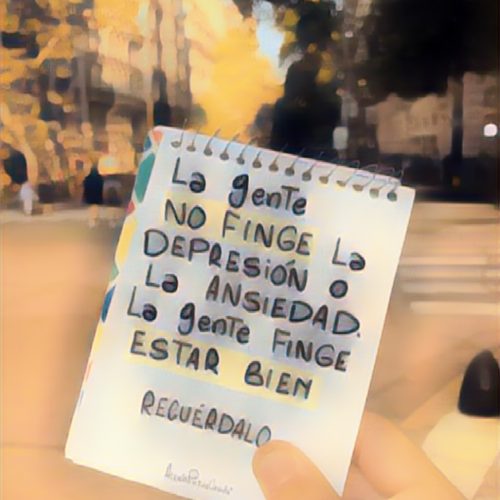 La gente
NO FINGE La
DEPRESIÓN O
La ANSIEDAD.
La gente FINGE
ESTAR BIEN
RECUÉRDALO